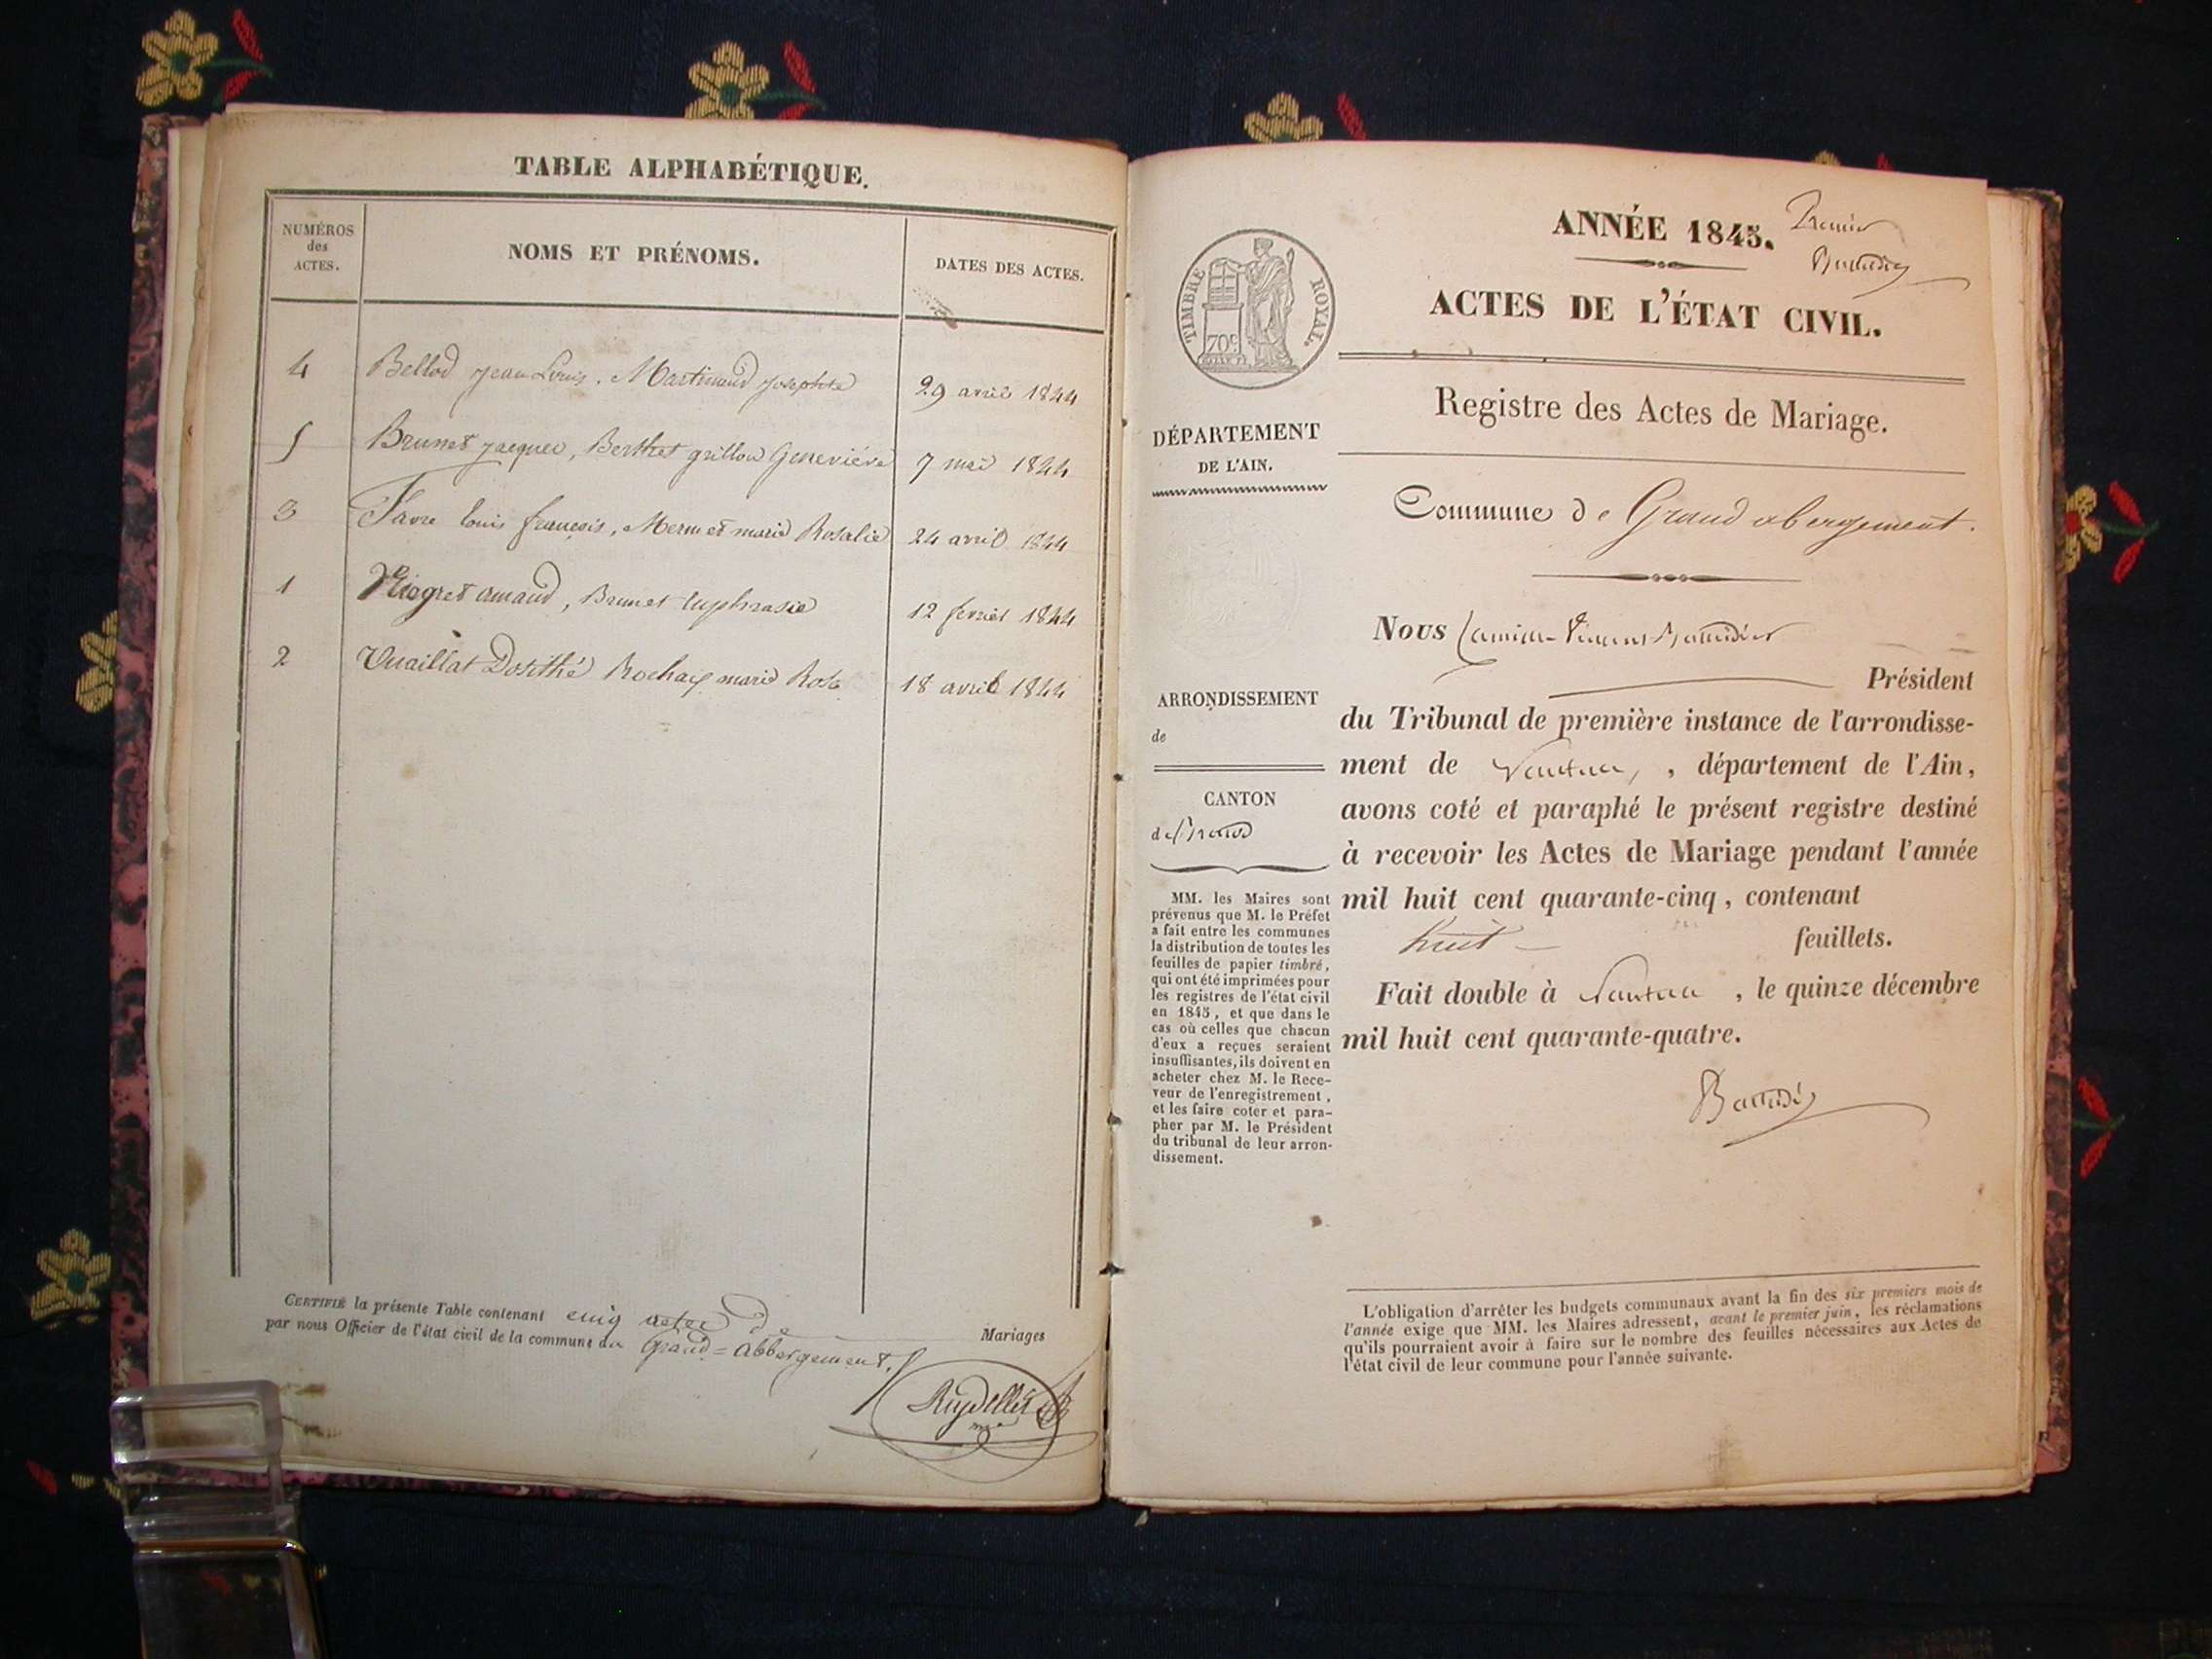 TABLE ALPHABÉTIQUE.
NUMÉROS
des
ACTES.
NOMS ET PRÉNOMS.
DATES DES ACTES.
4 Bellod Jean Louis, Martinand Josephte 29 avril 1844
5 Brunet Jacques, Berthet grillon Geneviève 7 mai 1844
3 Favre louis françois, Mermet marie Rosalie 24 avril 1844
1 amand, Brunet Euphrasie 12 fevrier 1844
2 Vuaillat Dosithé Rochaix marie Rose 18 avril 1844
CERTIFIÉ la présente Table contenant cinq actes de Mariages
par nous Officier de l'état civil de la commune du Grand=abbergement.
ANNÉE 1845. Premier
ACTES DE L'ÉTAT CIVIL.
TIMBRE ROYAL.
70c
Registre des Actes de Mariage.
DÉPARTEMENT
DE L'AIN.
Commune de Grand abergement.
Nous
Président
ARRONDISSEMENT
de
du Tribunal de première instance de l'arrondisse-
ment de Nantua, , département de l'Ain,
CANTON
de
avons coté et paraphé le présent registre destiné
à recevoir les Actes de Mariage pendant l'année
mil huit cent quarante-cinq, contenant
huit feuillets.
Fait double à Nantua , le quinze décembre
mil huit cent quarante-quatre.
MM. les Maires sont
prévenus que M. le Préfet
a fait entre les communes
la distribution de toutes les
feuilles de papier timbré,
qui ont été imprimées pour
les registres de l'état civil
en 1845, et que dans le
cas où celles que chacun
d'eux a reçues seraient
insuffisantes, ils doivent en
acheter chez M. le Rece-
veur de l'enregistrement,
et les faire coter et para-
pher par M. le Président
du tribunal de leur arron-
dissement.
L'obligation d'arrêter les budgets communaux avant la fin des six premiers mois de
l'année exige que MM. les Maires adressent, avant le premier juin, les réclamations
qu'ils pourraient avoir à faire sur le nombre des feuilles nécessaires aux Actes de
l'état civil de leur commune pour l'année suivante.